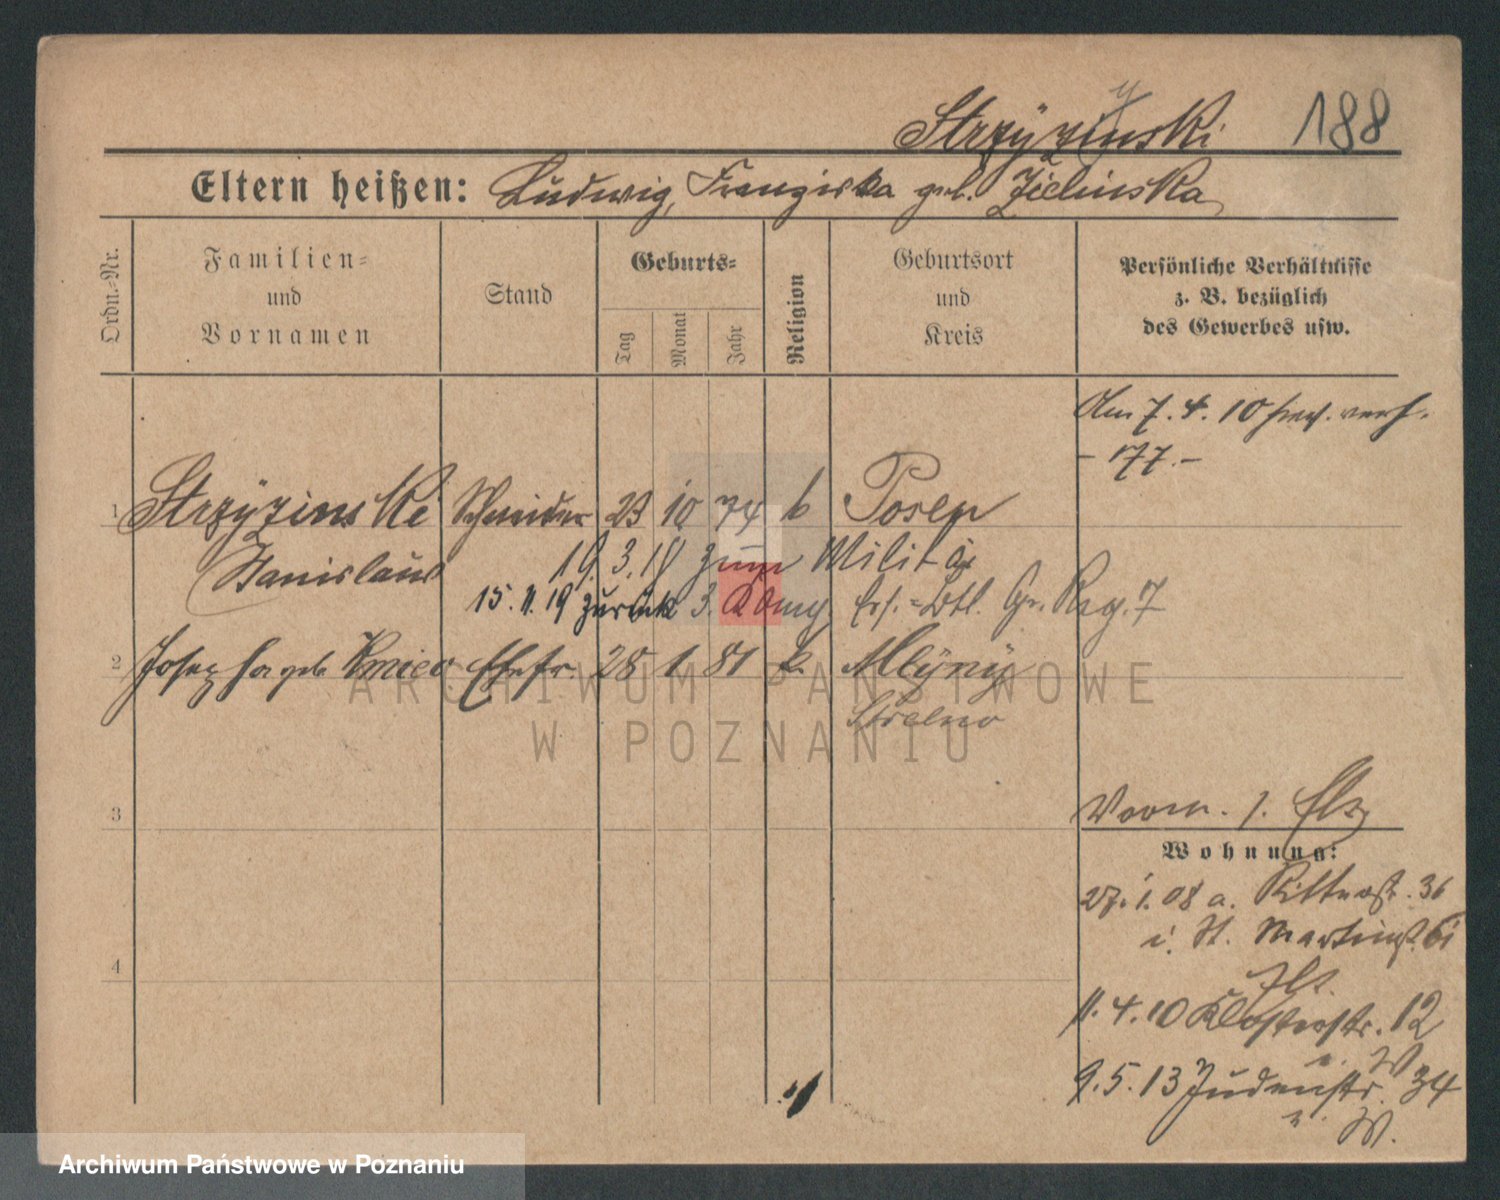 Strzÿzinski 188
y
Eltern heißen: Ludwig, Franziska geb. Zielinska
Ordn.-Nr.
Familien-
und
Vornamen
Stand
Geburts-
Tag
Monat
Jahr
Religion
Geburtsort
und
Kreis
Persönliche Verhältnisse
z. B. bezüglich
des Gewerbes usw.
Am 7. 4. 10
- 177. -
1 Strzÿzinski Schneider 23 10 74 k Posen
Stanislaus
19. 3. 18 zum Militär
15. 11. 19 zurück 3. Ers. Btl. Gr. Reg. 7
2 Josepha geb. Kmiec Ehefr. 28 1 81 k. Mlÿnÿ
Strelno
3
Wohnung:
27. 1. 08 a. Ritterstr. 36
i. St. Martinstr. 61
4
11. 4. 10 Klosterstr. 12
9. 5. 13 Judenstr. 34
v. W.
ARCHIWUM PAŃSTWOWE
W POZNANIU
Archiwum Państwowe w Poznaniu